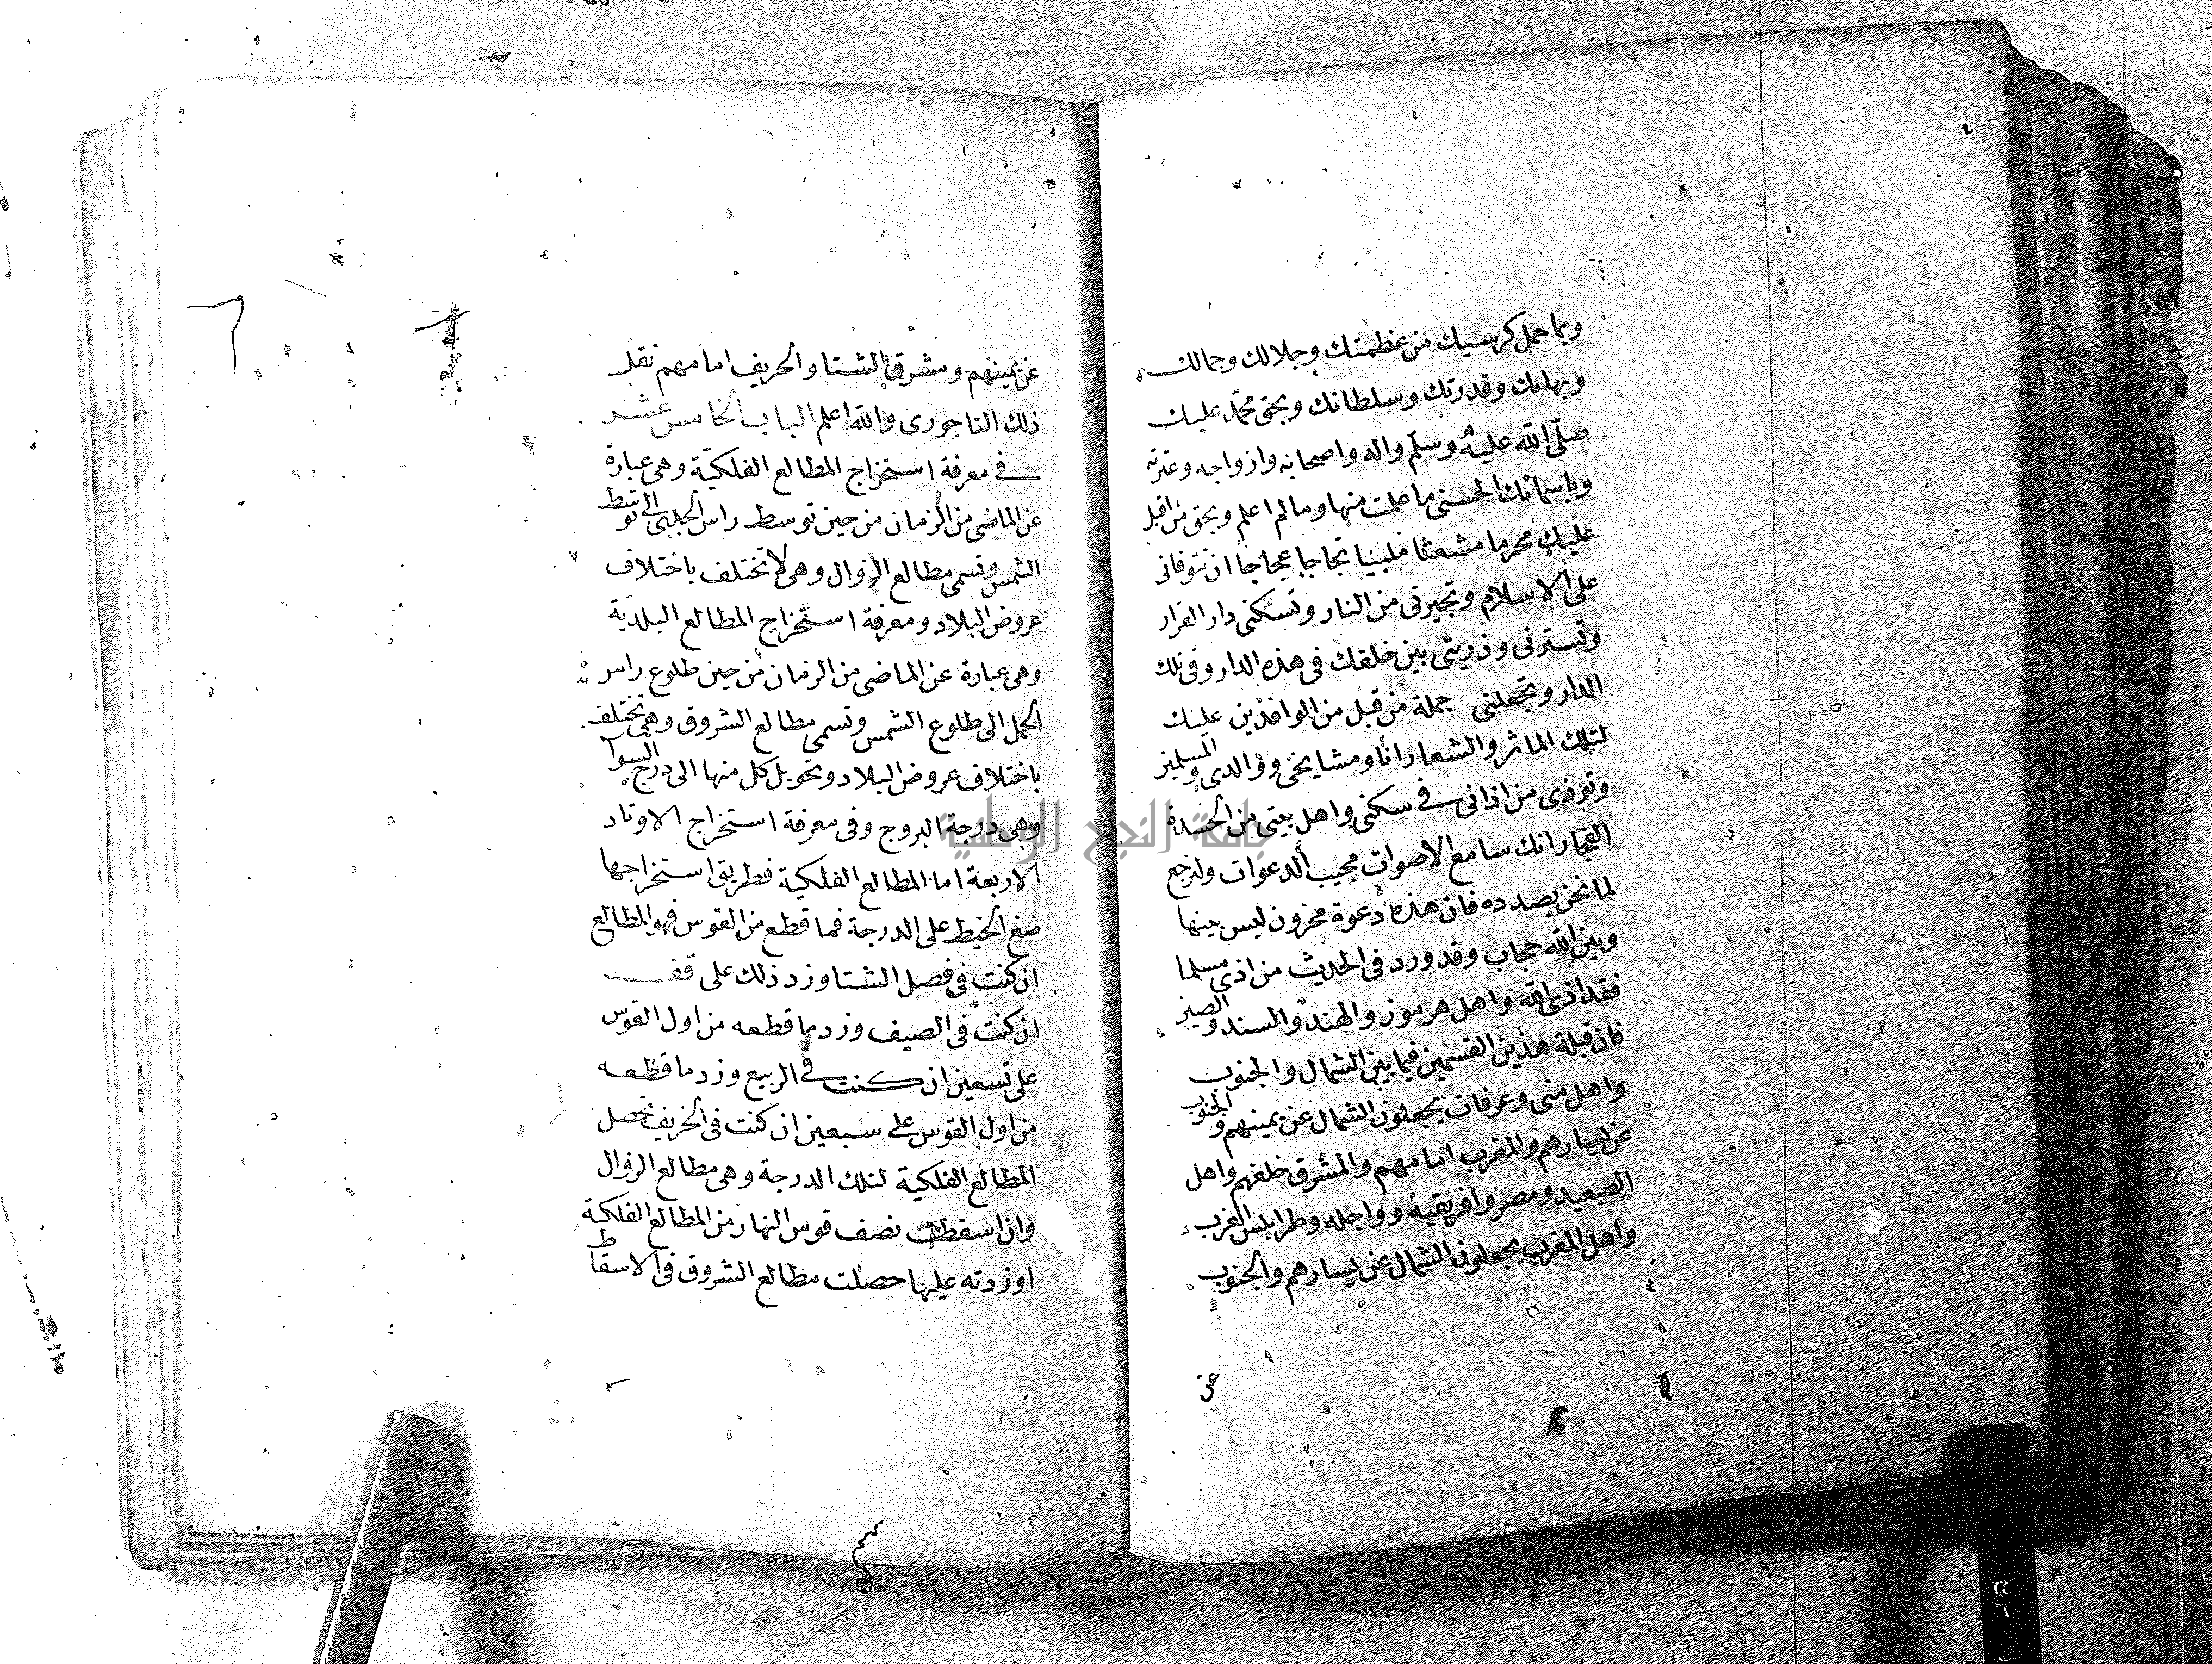 وبما حمل كرسيك من عظمتك وجلالك وجمالك
وبهائك وقدرتك وسلطانك وبحق محمد عليك
صلّى الله عليه وسلّم واله واصحابه وازواجه وعترته
وباسمائك الحسنى ما علمت منها وما لم اعلم وبحق من اقبل
عليك محرما مشعثا ملبيا ثجاجا عجاجا ان تتوفانى
على الاسلام وتجيرنى من النار وتسكننى دار القرار
وتسترنى وذريتى بين خلقك فى هذه الدار وفى تلك
الدار وتجعلنى جملة من قبل من الوافدين عليك
لتلك الماثر والشعار انا ومشايخى ووالدى والمسلمين
وتؤذى من اذانى فى سكنى واهل بيتى من الحسدة
الفجار انك سامع الاصوات مجيب الدعوات ولنرجع
لما نحن بصدده فان هذه دعوة محزون ليس بينها
وبين الله حجاب وقد ورد فى الحديث من اذى مسلما
فقد اذى الله واهل هرموز والهند والسند والصين
فان قبلة هذين القسمين فيما بين الشمال والجنوب
واهل منى وعرفات يجعلون الشمال عن يمينهم والجنوب
عن يسارهم والمغرب امامهم والمشرق خلفهم واهل
الصعيد ومصر وافريقية وواجله وطرابلس الغرب
واهل المغرب يجعلون الشمال عن يسارهم والجنوب
عن
عن يمينهم ومشرق الشتا والخريف امامهم نقل
ذلك التاجورى والله اعلم الباب الخامس عشر
فى معرفة استخراج المطالع الفلكيّة وهى عبارة
عن الماضى من الزمان من حين توسط راس الجدى الى توسط
الشمس وتسمى مطالع الزوال وهى لا تختلف باختلاف
عروض البلاد ومعرفة استخراج المطالع البلدية
وهى عبارة عن الماضى من الزمان من حين طلوع راس
الحمل الى طلوع الشمس وتسمى مطالع الشروق وهى تختلف
باختلاف عروض البلاد وتحويل كل منها الى درج السوا
وهى درجة البروج وفى معرفة استخراج الاوتاد
الاربعة اما المطالع الفلكية فطريق استخراجها
ضع الخيط على الدرجة فما قطع من القوس فهو المطالع
ان كنت فى فصل الشتا وزد ذلك على قف
ان كنت فى الصيف وزد ما قطعه من اول القوس
على تسعين ان كنت فى الربيع وزد ما قطعه
من اول القوس على سبعين ان كنت فى الخريف تحصل
المطالع الفلكية لتلك الدرجة وهى مطالع الزوال
وان اسقطت نصف قوس النهار من المطالع الفلكية
او زدته عليها حصلت مطالع الشروق فى الاسقاط
جامعة النجاح الوطنية